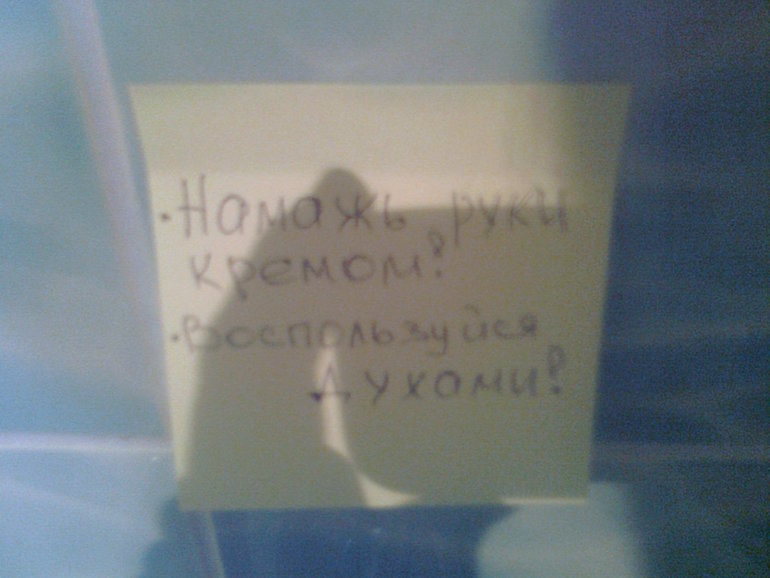 ·Намажь руки
кремом!
·Воспользуйся
духами!